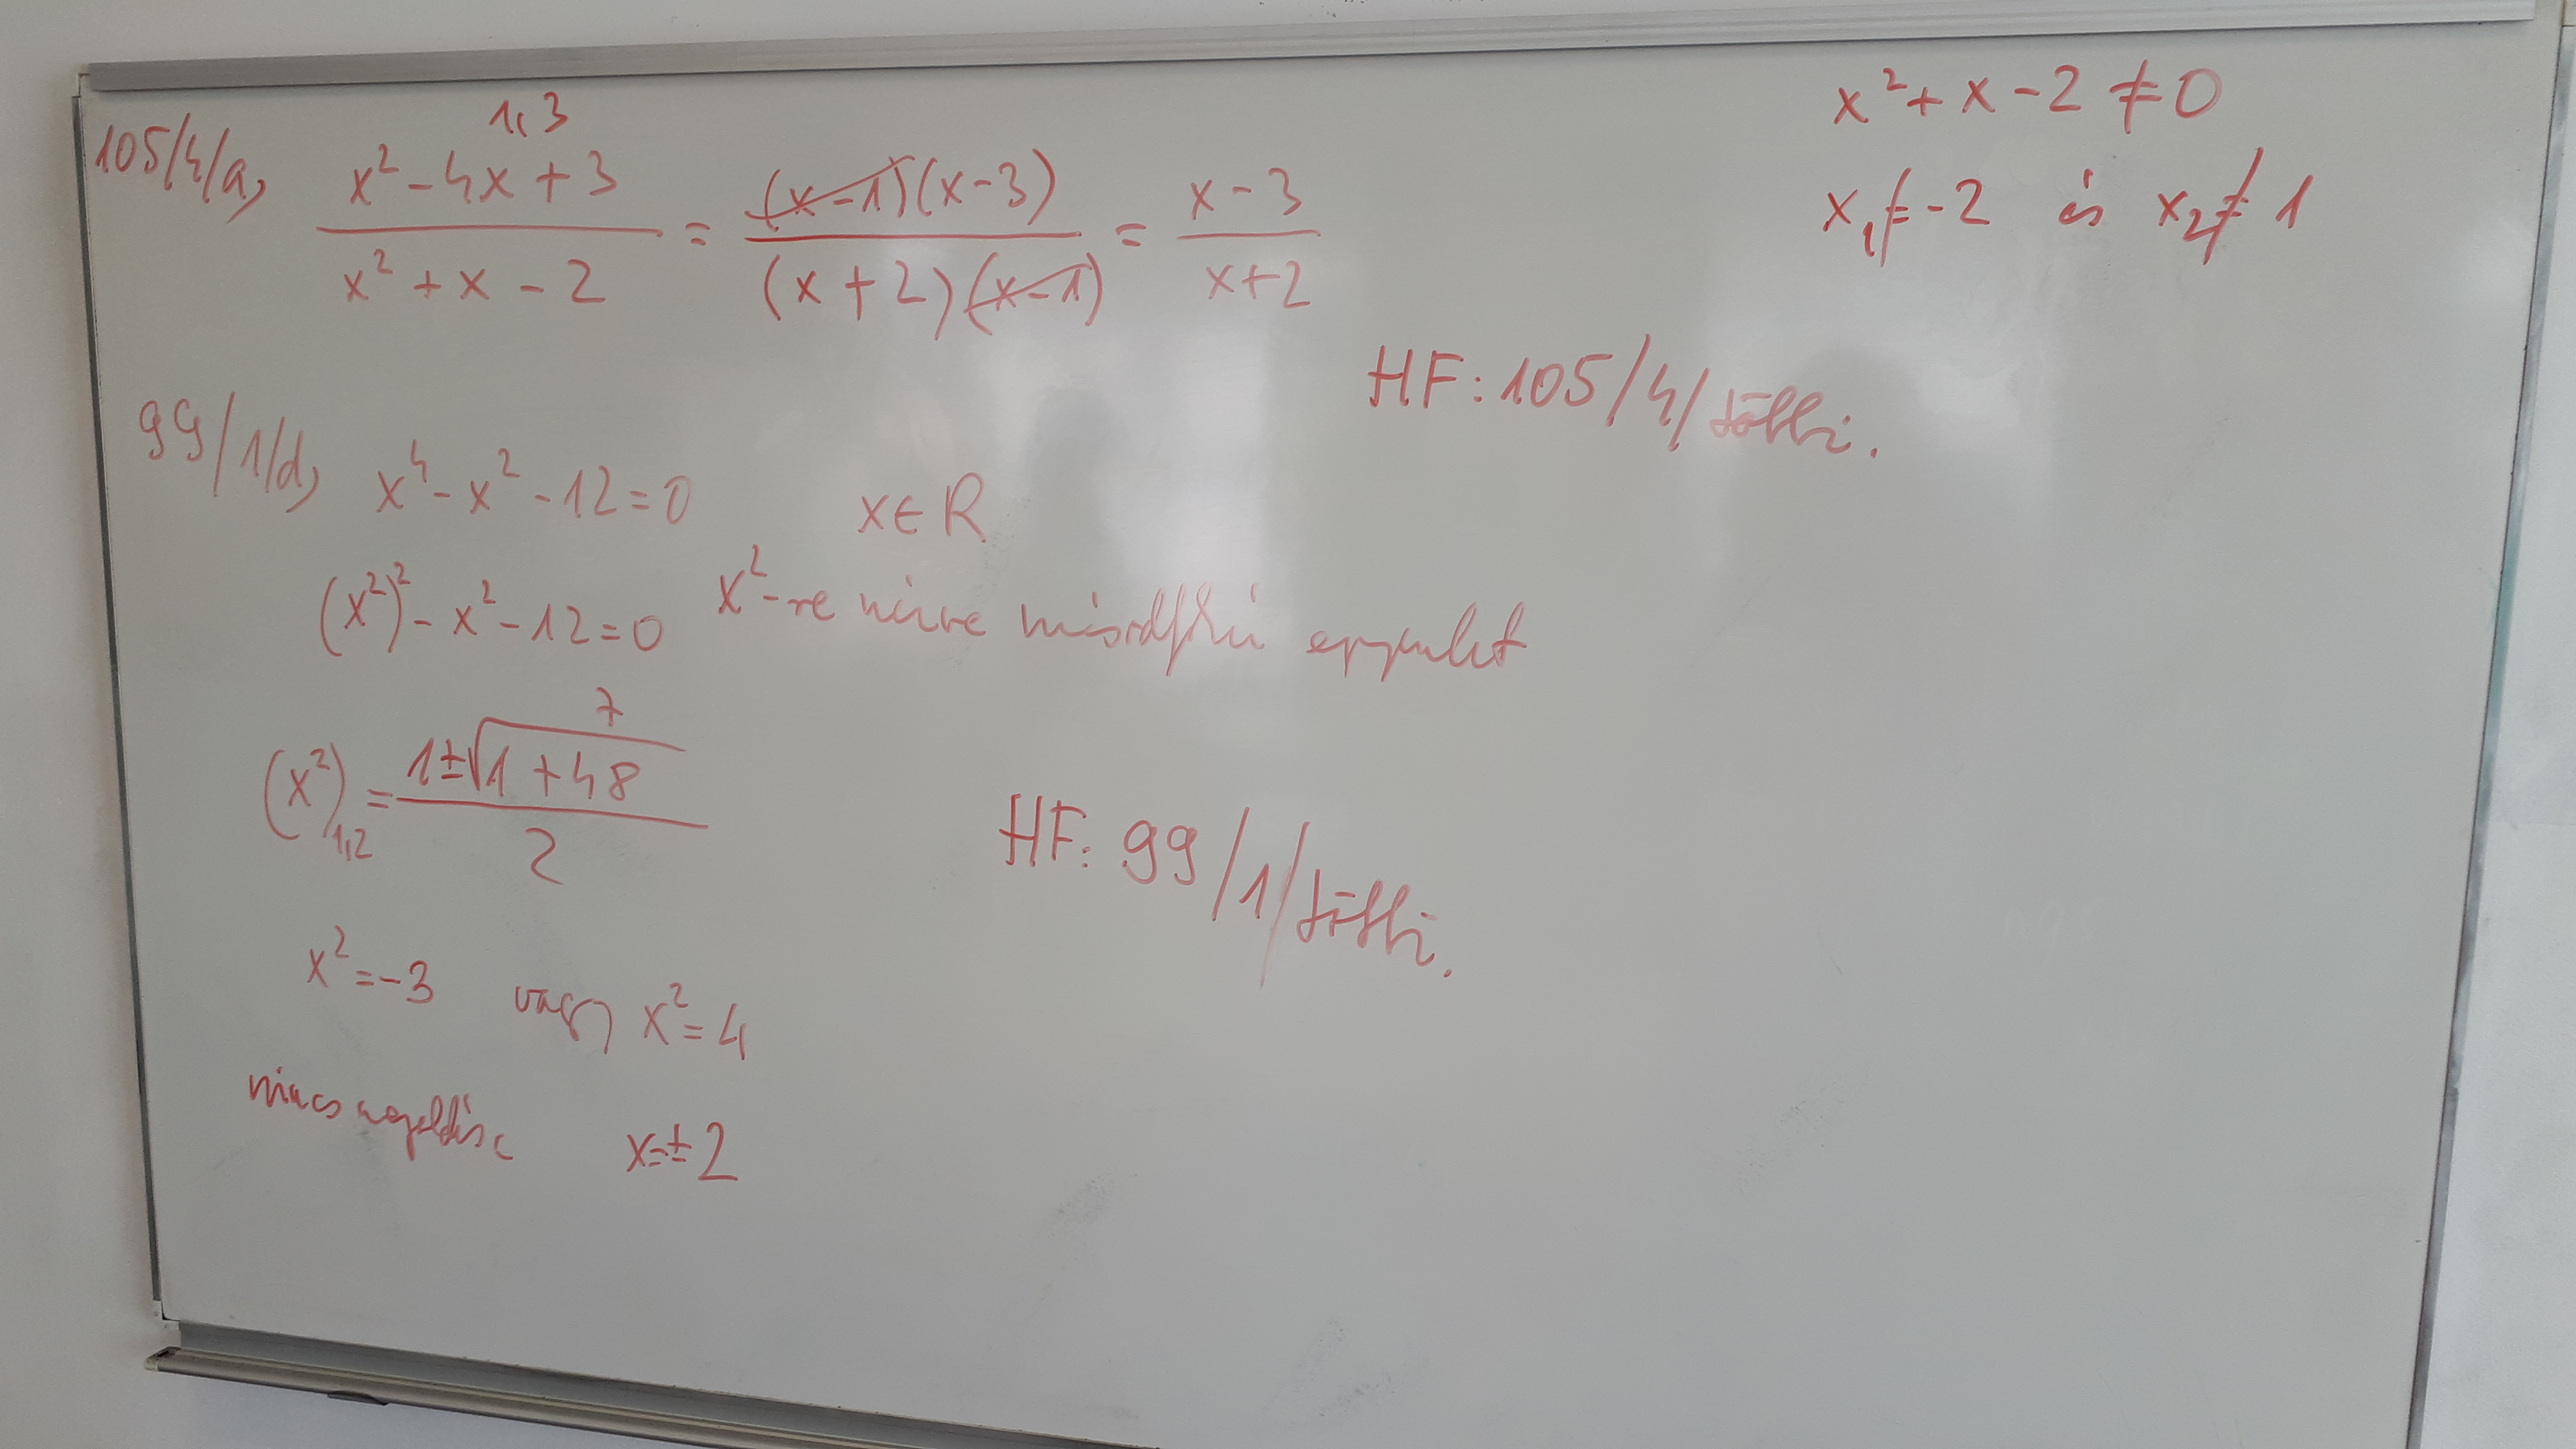 105/4/a, (x² - 4x + 3)/(x² + x - 2) = ((x-1)(x-3))/((x+2)(x-1)) = (x-3)/(x+2)
1, 3
x² + x - 2 ≠ 0
x₁ ≠ -2 és x₂ ≠ 1
HF: 105/4/többi.
99/1/d, x⁴ - x² - 12 = 0 x ∈ R
(x²)² - x² - 12 = 0 x²-re nézve másodfokú egyenlet
7
(x²)₁,₂ = (1 ± √(1 + 48))/2
HF: 99/1/többi.
x² = -3 vagy x² = 4
nincs megoldás x = ± 2